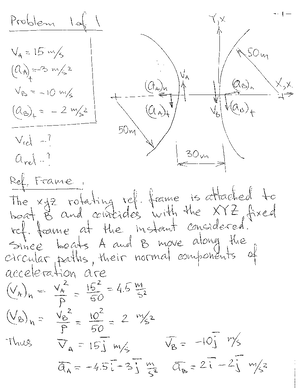 Problem 1 of 1
- 1 -
V_A = 15 m/s
(a_A)_t = -3 m/s²
V_B = -10 m/s
(a_B)_t = -2 m/s²
V_rel - ?
a_rel - ?
Y, y
50m
(a_A)_n
V_A
(a_B)_n
X, x
(a_A)_t
V_B
(a_B)_t
50m
30m
Ref. Frame.
The xyz rotating ref. frame is attached to
boat B and coincides with the XYZ fixed
ref. frame at the instant considered.
Since boats A and B move along the
circular paths, their normal components of
acceleration are
(V_A)_n = V_A²/ρ = 15²/50 = 4.5 m/s²
(V_B)_n = V_B²/ρ = 10²/50 = 2 m/s²
Thus V̄_A = 15 j̄ m/s V̄_B = -10 j̄ m/s
ā_A = -4.5 ī - 3 j̄ m/s² ā_B = 2 ī - 2 j̄ m/s²